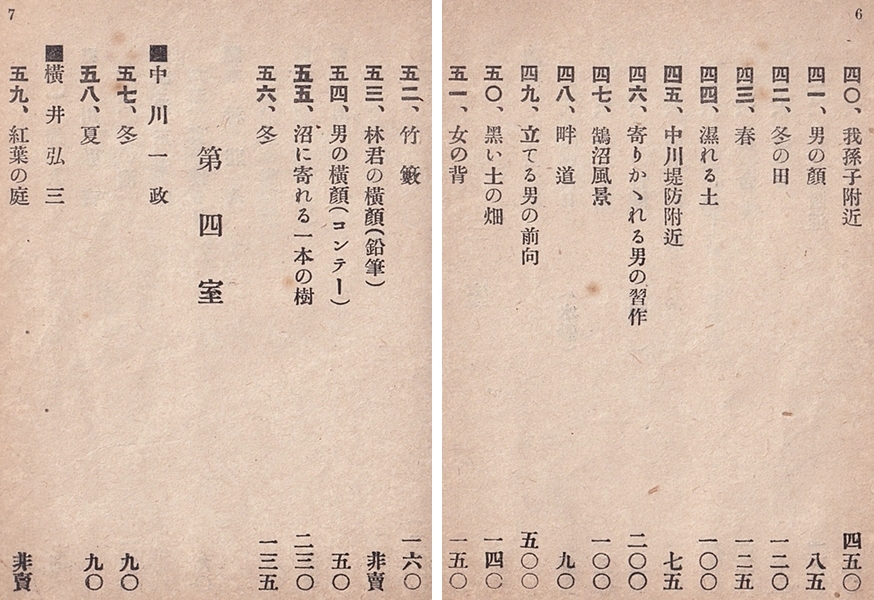 6
四〇、我孫子附近 四五〇
四一、男の顔 八五
四二、冬の田 一二〇
四三、春 一二五
四四、濕れる土 一〇〇
四五、中川堤防附近 七五
四六、寄りかゝれる男の習作 二〇〇
四七、鵠沼風景 一〇〇
四八、畔道 九〇
四九、立てる男の前向 五〇〇
五〇、黑い土の畑 一四〇
五一、女の背 一五〇
7
五二、竹籔 一六〇
五三、林君の橫顔(鉛筆) 非賣
五四、男の橫顔(コンテー) 五〇
五五、沼に寄れる一本の樹 二三〇
五六、冬 一三五
第四室
■中川一政
五七、冬 九〇
五八、夏 九〇
■橫井弘三
五九、紅葉の庭 非賣